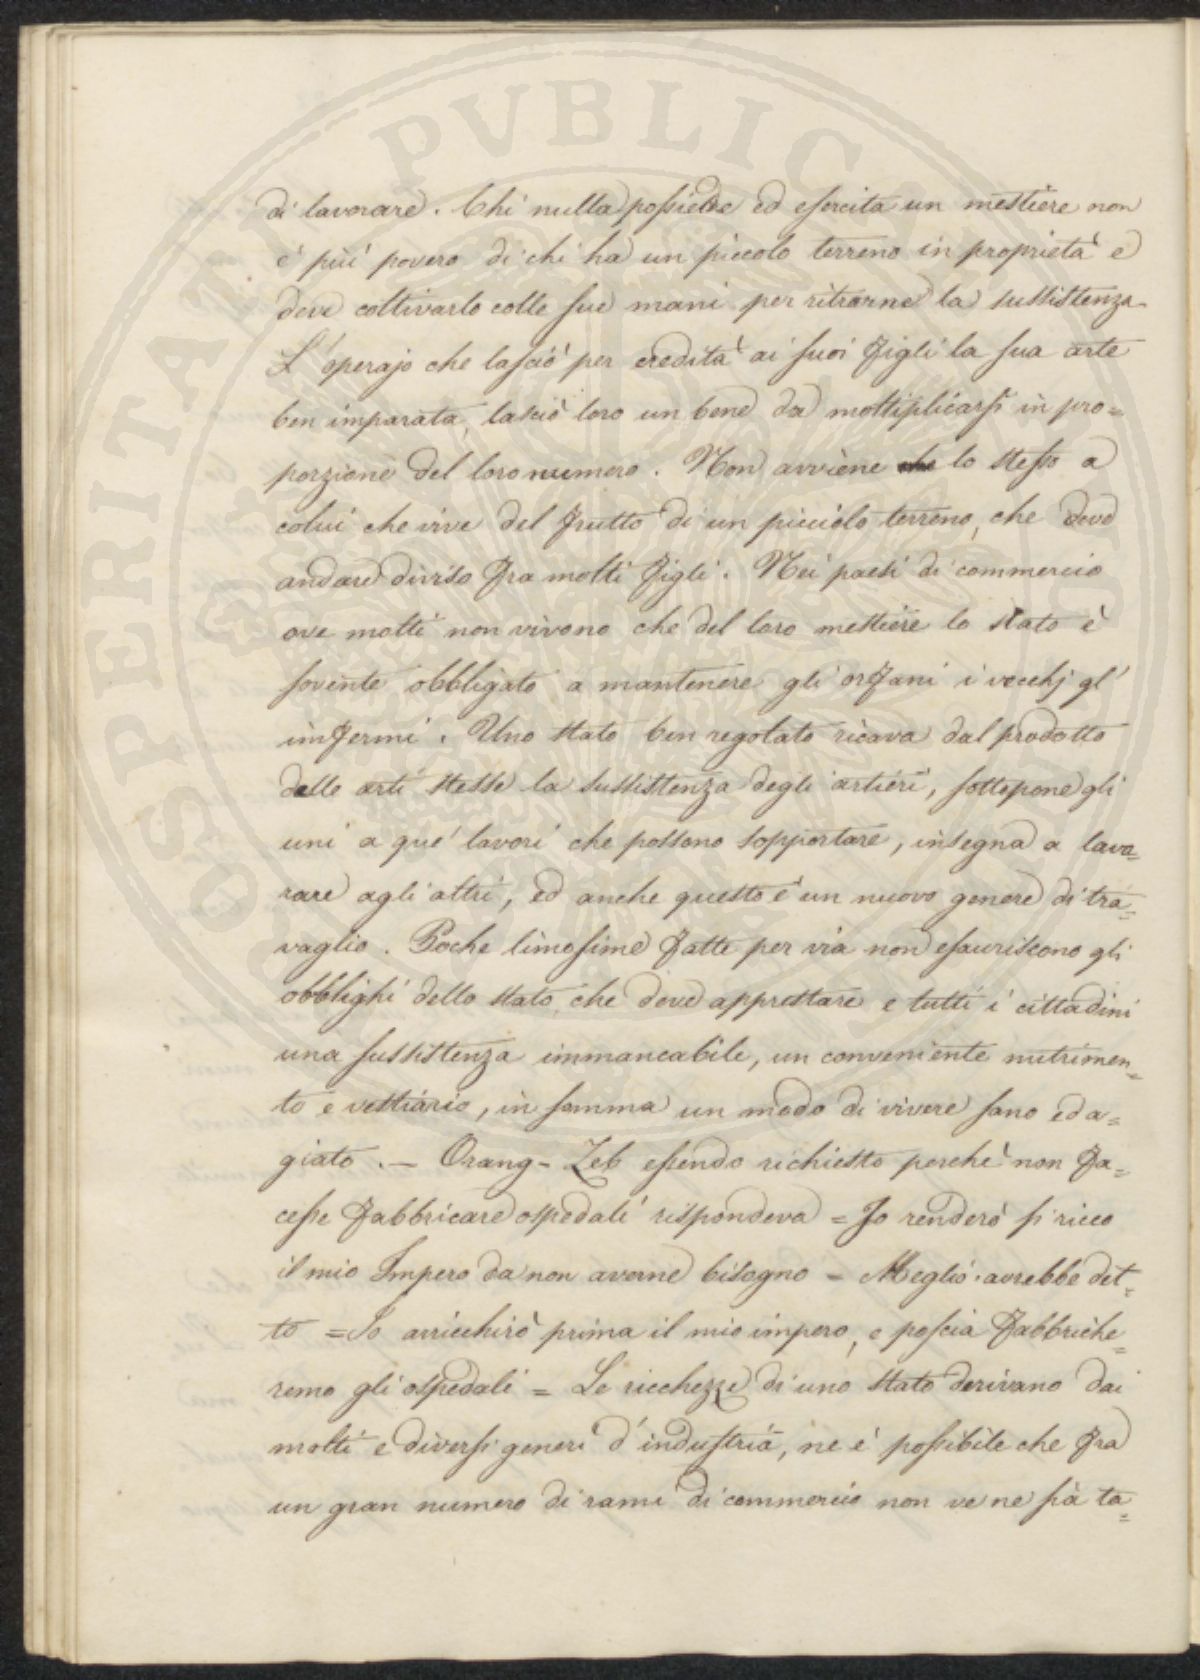 di lavorare. Chi nulla possiede ed esercita un mestiere non
è più povero di chi ha un piccolo terreno in proprietà e
deve coltivarlo colle sue mani per ritrarne la sussistenza.
L'operajo che lasciò per eredità ai suoi figli la sua arte
ben imparata, lasciò loro un bene da moltiplicarsi in pro=
porzione del loro numero. Non avviene che lo stesso a
colui che vive del frutto di un picciolo terreno, che deve
andare diviso fra molti figli. Nei paesi di commercio
ove molti non vivono che del loro mestiere lo stato è
sovente obbligato a mantenere gli orfani i vecchj gl'
infermi. Uno stato ben regolato ricava dal prodotto
delle arti stesse la sussistenza degli artieri, sottopone gli
uni a que' lavori che possono sopportare, insegna a lavo=
rare agli altri, ed anche questo è un nuovo genere di tra=
vaglio. Poche limosine fatte per via non esauriscono gli
obblighi dello stato che deve apprestare e tutti i cittadini
una sussistenza immancabile, un conveniente nutrimen=
to e vestiario, in somma un modo di vivere sano ed a=
giato. — Orang-Zeb essendo richiesto perchè non fa=
cesse fabbricare ospedali rispondeva = Io renderò sì ricco
il mio Impero da non averne bisogno = Meglio avrebbe det=
to = Io arricchirò prima il mio impero, e poscia fabbriche=
remo gli ospedali = Le ricchezze di uno stato derivano dai
molti e diversi generi d'industria, ne è possibile che fra
un gran numero di rami di commercio non ve ne sia ta=
PVBLICA
PROSPERITATI